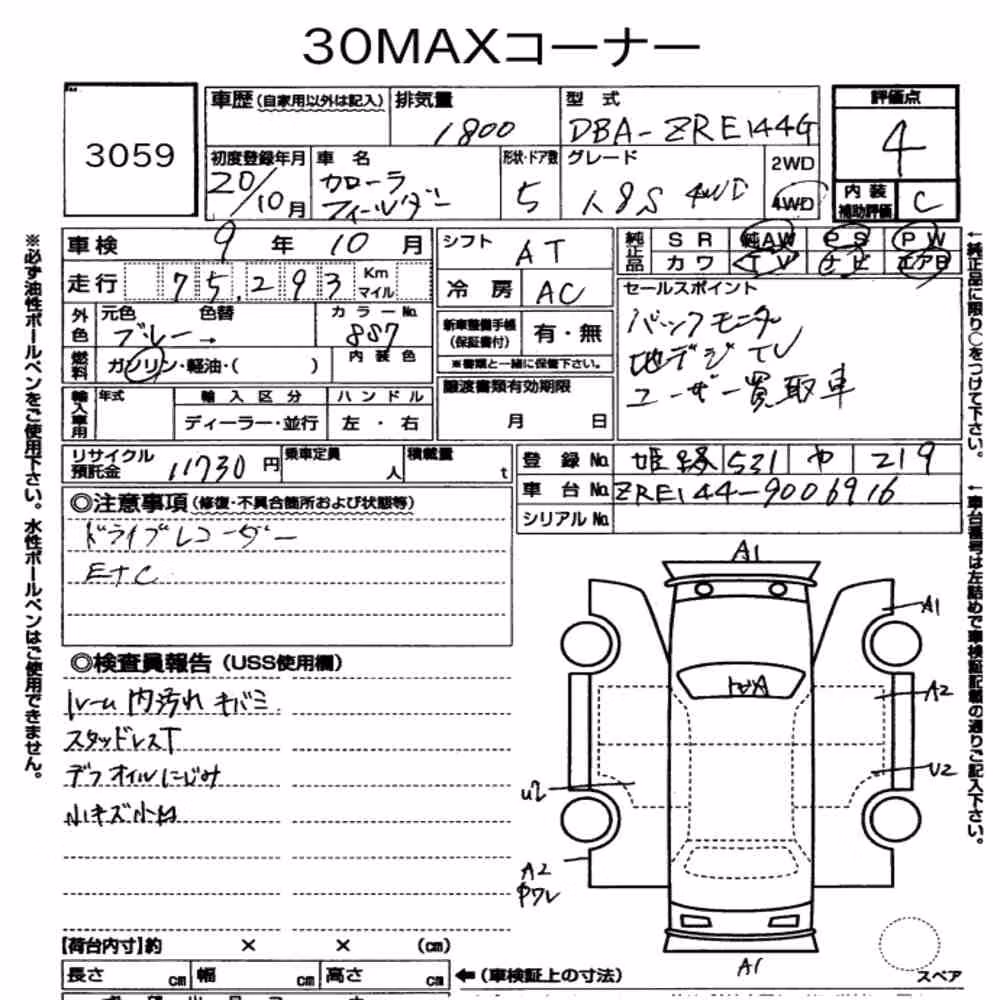 30MAXコーナー
3059
車歴(自家用以外は記入) 排気量 1800
型式 DBA-ZRE144G
評価点 4
初度登録年月 20/10月
車名 カローラ フィールダー
形状・ドア数 5
グレード 1.8S 4WD
2WD
4WD
内装補助評価 C
車検 9年 10月
シフト AT
純正品 SR 純AW PS PW
カワ TV ナビ エアB
走行 75,293 Km マイル
冷房 AC
セールスポイント
バックモニタ
地デジTV
ユーザー買取車
外色 元色 ブルー → 色替 カラーNo. 8S7
新車整備手帳(保証書付) 有・無
※書類と一緒に保管下さい。
燃料 ガソリン・軽油・( ) 内装色
譲渡書類有効期限 月 日
輸入車用 年式 輸入区分 ハンドル
ディーラー・並行 左・右
リサイクル預託金 11730円 乗車定員 人 積載量 t
登録No. 姫路 531 や 219
車台No. ZRE144-9006916
シリアルNo.
◎注意事項(修復・不具合箇所および状態等)
ドライブレコーダー
ETC
◎検査員報告(USS使用欄)
ルーム内汚れ キバミ
スタッドレスT
デフオイルにじみ
小キズ小凹
A1
A1
トビA
A2
U2
U2
A2
中ワレ
A1
スペア
【荷台内寸】約 × × (cm)
長さ cm 幅 cm 高さ cm ←(車検証上の寸法)
※必ず油性ボールペンをご使用下さい。水性ボールペンはご使用できません。
←純正品に限り○をつけて下さい。
←車台番号は左詰めで車検証記載の通りご記入下さい。